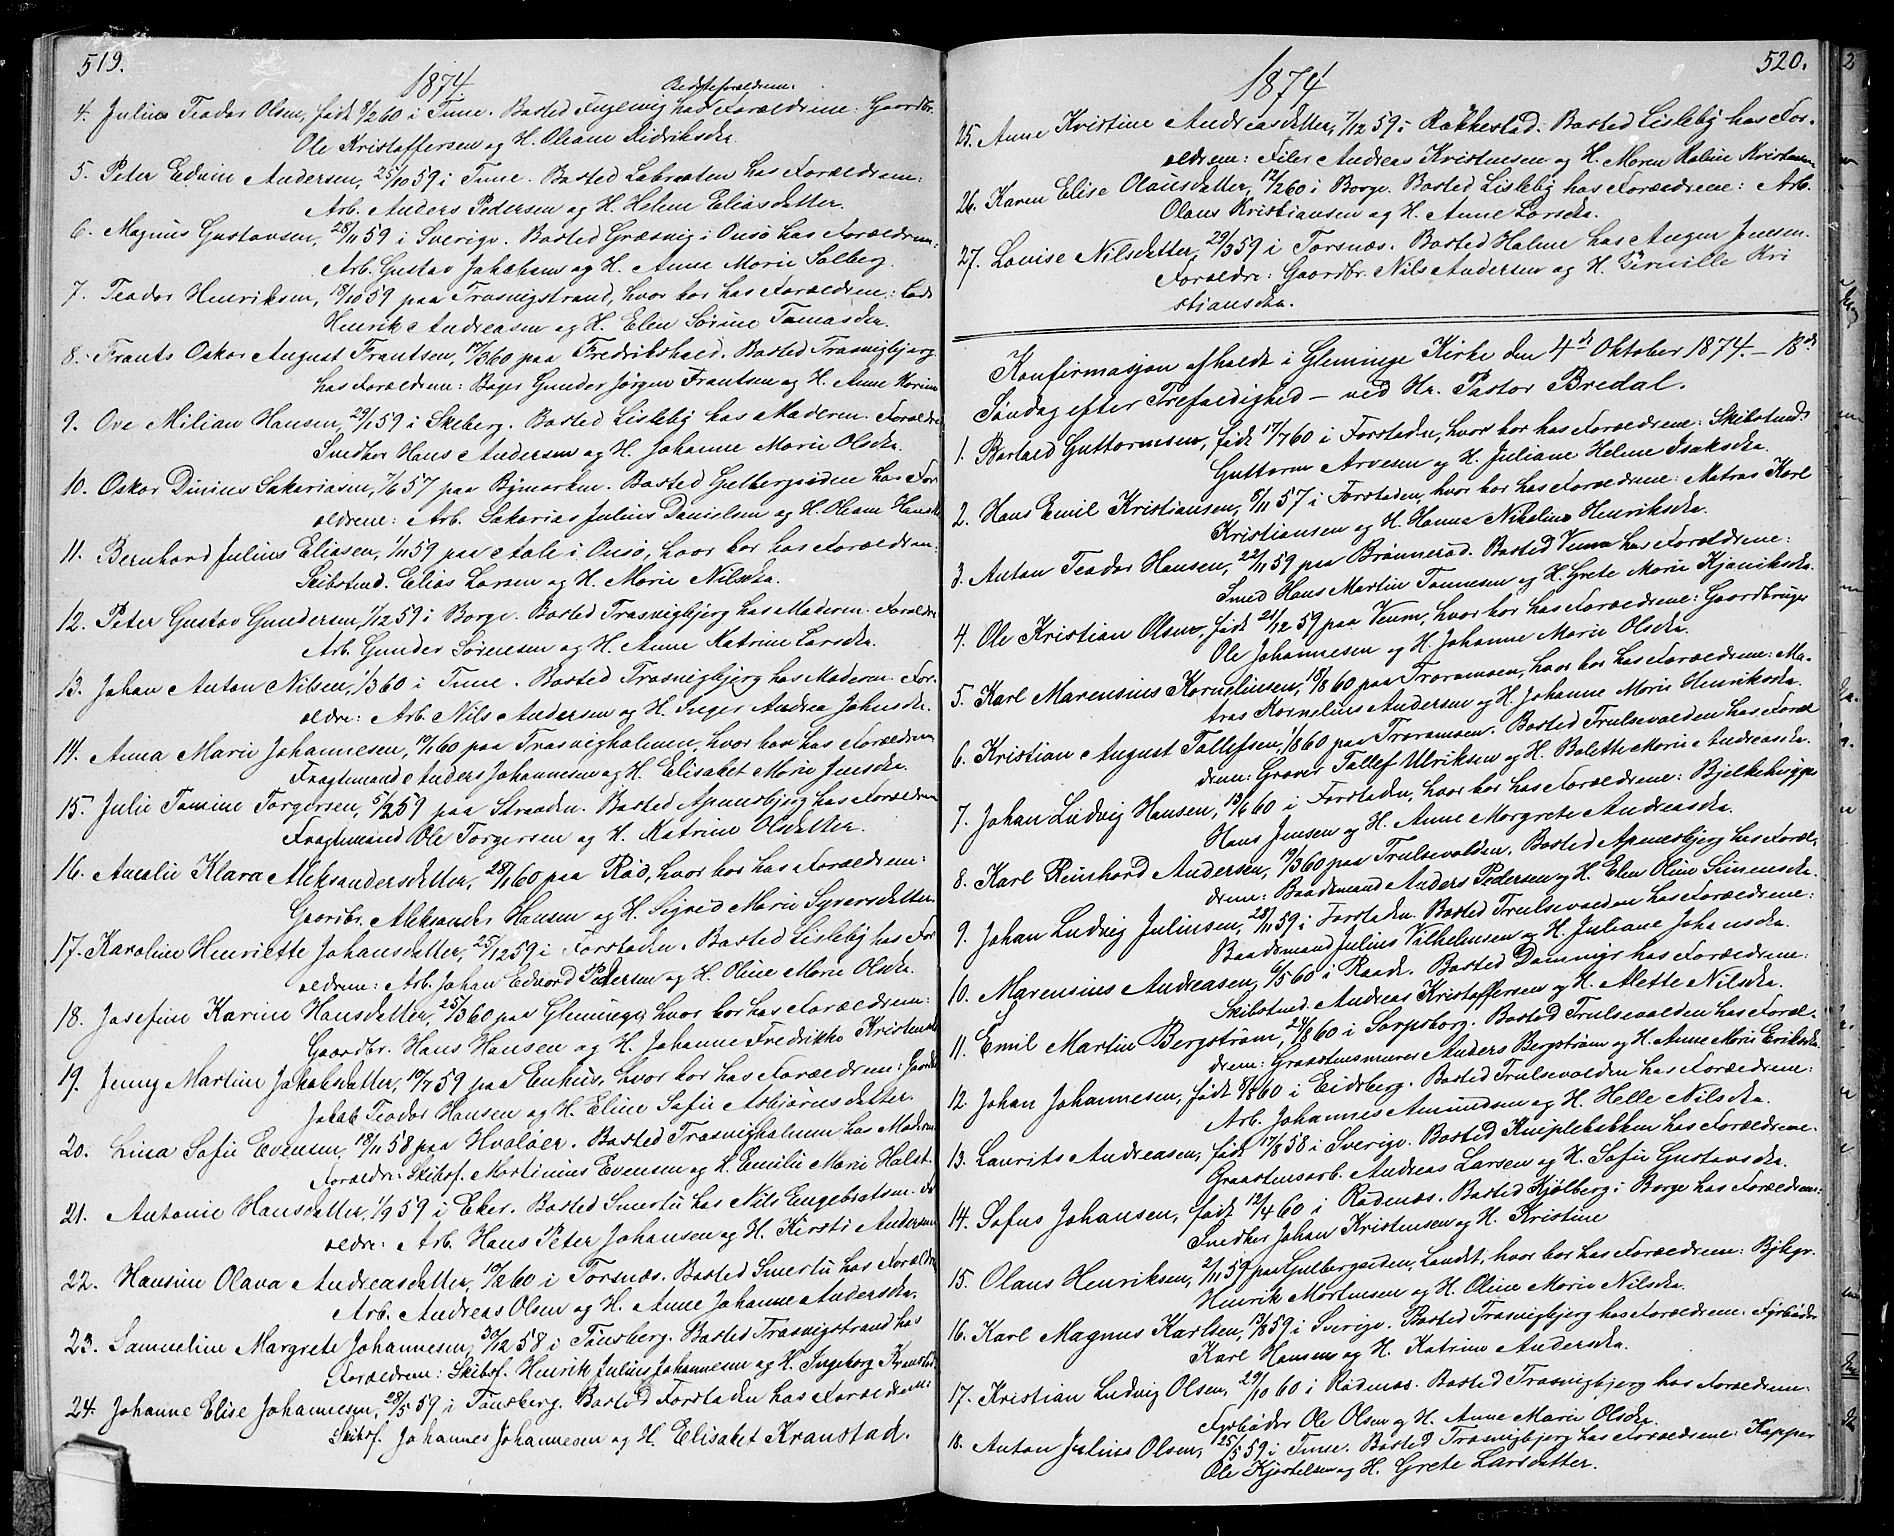 519.
1874
Bedsteforældrene.
4. Julius Teodor Olsen, født 8/2 60 i Tune. Bosted Fuglevig hos Forældrene: Gaardbr.
Ole Kristoffersen og H. Oleane Didriksdtr.
5. Peter Edvin Andersen, 25/10 59 i Tune. Bosted Labraaten hos Forældrene:
Arb. Anders Pedersen og H. Helene Eliasdatter.
6. Magnus Gustavsen, 28/11 59 i Sverige. Bosted Græsvig i Onsø hos Forældrene:
Arb. Gustav Jakobsen og H. Anne Marie Solberg.
7. Teodor Henriksen, 18/10 59 paa Trosvigstrand, hvor bor hos Forældrene: Lods
Henrik Andreasen og H. Elen Sørine Tomasdtr.
8. Frants Oskar August Frantsen, 17/3 60 paa Fredrikshald. Bosted Trosvigbjerg
hos Forældrene: Bager Gunder Jørgen Frantsen og H. Anne Korine
9. Ove Milian Hansen, 29/1 59 i Skeberg. Bosted Lisleby hos Moderen. Forældre
Snedker Hans Andersen og H. Johanne Marie Olsdtr.
10. Oskar Dinius Sakariasen, 7/6 57 paa Bjmarken. Bosted Gulbergsiden hos For
ældrene: Arb. Sakarias Julius Danielsen og H. Oleane Hansdtr
11. Bernhard Julius Eliasen, 1/11 59 paa Aale i Onsø, hvor bor hos Forældrene:
Skibstmd. Elias Larsen og H. Marie Nilsdtr.
12. Peter Gustav Gundersen, 1/12 59 i Borge. Bosted Trosvigbjerg hos Moderen. Forældre
Arb. Gunder Sørensen og H. Anne Katrine Larsdtr.
13. Johan Anton Nilsen, 1/3 60 i Tune. Bosted Trosvigbjerg hos Moderen. For-
ældre: Arb. Nils Andersen og H. Inger Andrea Johnsdtr.
14. Anna Marie Johannesen, 19/1 60 paa Trosvigholmen, hvor bor hos Forældrene
Fragtemand Anders Johannesen og H. Elisabet Marie Jensdtr.
15. Julie Tomine Torgersen, 5/2 59 paa Straaden. Bosted Apenesbjerg hos Forældrene
Fragtemand Ole Torgersen og H. Katrine Olsdatter.
16. Amalie Klara Aleksandersdatter, 28/1 60 paa Rød, hvor bor hos Forældrene:
Gaardbr. Aleksander Hansen og H. Sigrid Marie Syversdatter.
17. Karoline Henriette Johansdatter, 25/12 59 i Forstaden. Bosted Lisleby hos For
ældrene: Arb. Johan Edvard Pedersen og H. Oline Marie Olsdtr.
18. Josefine Karine Hansdatter, 25/3 60 paa Glemminge, hvor bor hos Forældrene:
Gaardbr. Hans Hansen og H. Johanne Fredrikke Kristensdtr
19. Jenny Martine Jakobsdatter, 19/7 59 paa Enhus, hvor bor hos Forældrene: Gaardbr
Jakob Teodor Hansen og H. Eline Sofie Asbjørnsdatter.
20. Lina Sofie Evensen, 18/11 58 paa Hvaløer. Bosted Trosvigholmen hos Moderen
Forældre: Skibsf. Martinius Evensen og H. Emilie Marie Holst.
21. Antonie Hansdatter, 1/9 59 i Eker. Bosted Smertu hos Nils Engebretsen. For
ældre: Arb. Hans Peter Johansen og H. Kirsti Andersen
22. Hansine Olava Andreasdatter, 19/2 60 i Torsnæs. Bosted Smertu hos Forældre
Arb. Andreas Olsen og H. Anne Johanne Andersdtr.
23. Samueline Margrete Johannesen, 30/12 58 i Tønsberg. Bosted Trosvigstrand hos
Forældrene: Skibsf. Henrik Julius Johannesen og H. Ingeborg Kranstad.
24. Johanne Elise Johannesen, 28/5 59 i Tønsberg. Bosted Forstaden hos Forældrene:
Skibsf. Johannes Johannesen og H. Elisabet Kranstad.
520.
1874
25. Anne Kristine Andreasdatter, 7/12 59 i Rakkestad. Bosted Lisleby hos For-
ældrene: Filer Andreas Kristensen og H. Maren Kaline Kristiansen
26. Karen Elise Olausdatter, 12/2 60 i Borge. Bosted Lisleby hos Forældrene: Arb.
Olaus Kristiansen og H. Anne Larsdtr.
27. Lovise Nilsdatter, 29/3 59 i Torsnæs. Bosted Halne hos August Jensen.
Forældre: Gaardbr. Nils Andersen og H. Pernille Kri
stiansdtr.
Konfirmasjon afholdt i Glemminge Kirke den 4de Oktober 1874. – 18de
Søndag efter Trefoldighed – ved Hr. Pastor Bredal.
1. Bortard Guttormsen, født 17/7 60 i Forstaden, hvor bor hos Forældrene: Skibstmd
Guttorm Arvesen og H. Juliane Helene Isaksdtr.
2. Hans Emil Kristiansen, 5/11 57 i Forstaden, hvor bor hos Forældrene: Matros Karl
Kristiansen og H. Hanna Nikoline Henriksdtr.
3. Anton Teodor Hansen, 22/11 59 paa Brønnerød. Bosted Veum hos Forældrene:
Smed Hans Martin Tønnesen og H. Grete Marie Kjøniksdtr.
4. Ole Kristian Olsen, født 21/12 59 paa Veum, hvor bor hos Forældrene: Gaardbruger
Ole Johannesen og H. Johanne Marie Olsdtr.
5. Karl Marensius Kornelinsen, 19/8 60 paa Traramoen, hvor bor hos Forældrene: Ma-
tros Kornelius Andersen og H. Johanne Marie Henriksdtr.
6. Kristian August Tollefsen, 1/8 60 paa Traramoen. Bosted Trulsevolden hos Foræl
drene: Graver Tollef Ulriksen og H. Bolette Marie Andreasdtr.
7. Johan Ludvig Hansen, 13/6 60 i Forstaden, hvor bor hos Forældrene: Bjelkehugger
Hans Jensen og H. Anne Margrete Andreasdtr.
8. Karl Reinhard Andersen, 19/3 60 paa Trulsevolden. Bosted Apenesbjerg hos Foræl-
drene: Baadsmand Anders Pedersen og H. Elen Oline Simensdtr.
9. Johan Ludvig Juliusen, 28/11 59 i Forstaden. Bosted Trulsevolden hos Forældrene:
Baadsmand Julius Vilhelmsen og H. Juliane Johansdtr.
10. Marensius Andreasen, 6/5 60 i Raade. Bosted Damningr hos Forældrene:
Skibstmd Andreas Kristoffersen og H. Alette Nilsdtr.
11. Emil Martin Bergstrøm, 24/8 60 i Sarpsborg. Bosted Trulsevolden hos Foræl-
drene: Graastensmurer Anders Bergstrøm og H. Anne Marie Eriksdtr.
12. Johan Johannesen, født 8/8 60 i Eidsberg. Bosted Trulsevolden hos Forældrene:
Arb. Johannes Amundsen og H. Helle Nilsdtr.
13. Laurits Andreasen, født 17/8 58 i Sverige. Bosted Kniplebakken hos Forældrene.
Graastensarb. Andreas Larsen og H. Sofie Gustavsdtr.
14. Sofus Johansen, født 12/4 60 i Rødenæs. Bosted Kjølberg i Borge hos Forældrene:
Snedker Johan Kristensen og H. Kristine
15. Olaus Henriksen, 2/11 59 paa Gulbergsiden, Landet, hvor bor hos Forældrene: Bjkgr.
Henrik Mortensen og H. Oline Marie Nilsdtr.
16. Karl Magnus Karlsen, 13/8 59 i Sverige. Bosted Trosvigbjerg hos Forældrene: Fyrbøder
Karl Hansen og H. Katrine Andersdtr.
17. Kristian Ludvig Olsen, 29/10 60 i Rødenæs. Bosted Trosvigbjerg hos Forældrene:
Fyrbøder Ole Olsen og H. Anne Marie Olsdtr.
18. Anton Julius Olsen, 25/5 59 i Tune. Bosted Trosvigbjerg hos Forældrene: Kapper
Ole Kjøstelsen og H. Grete Larsdatter.